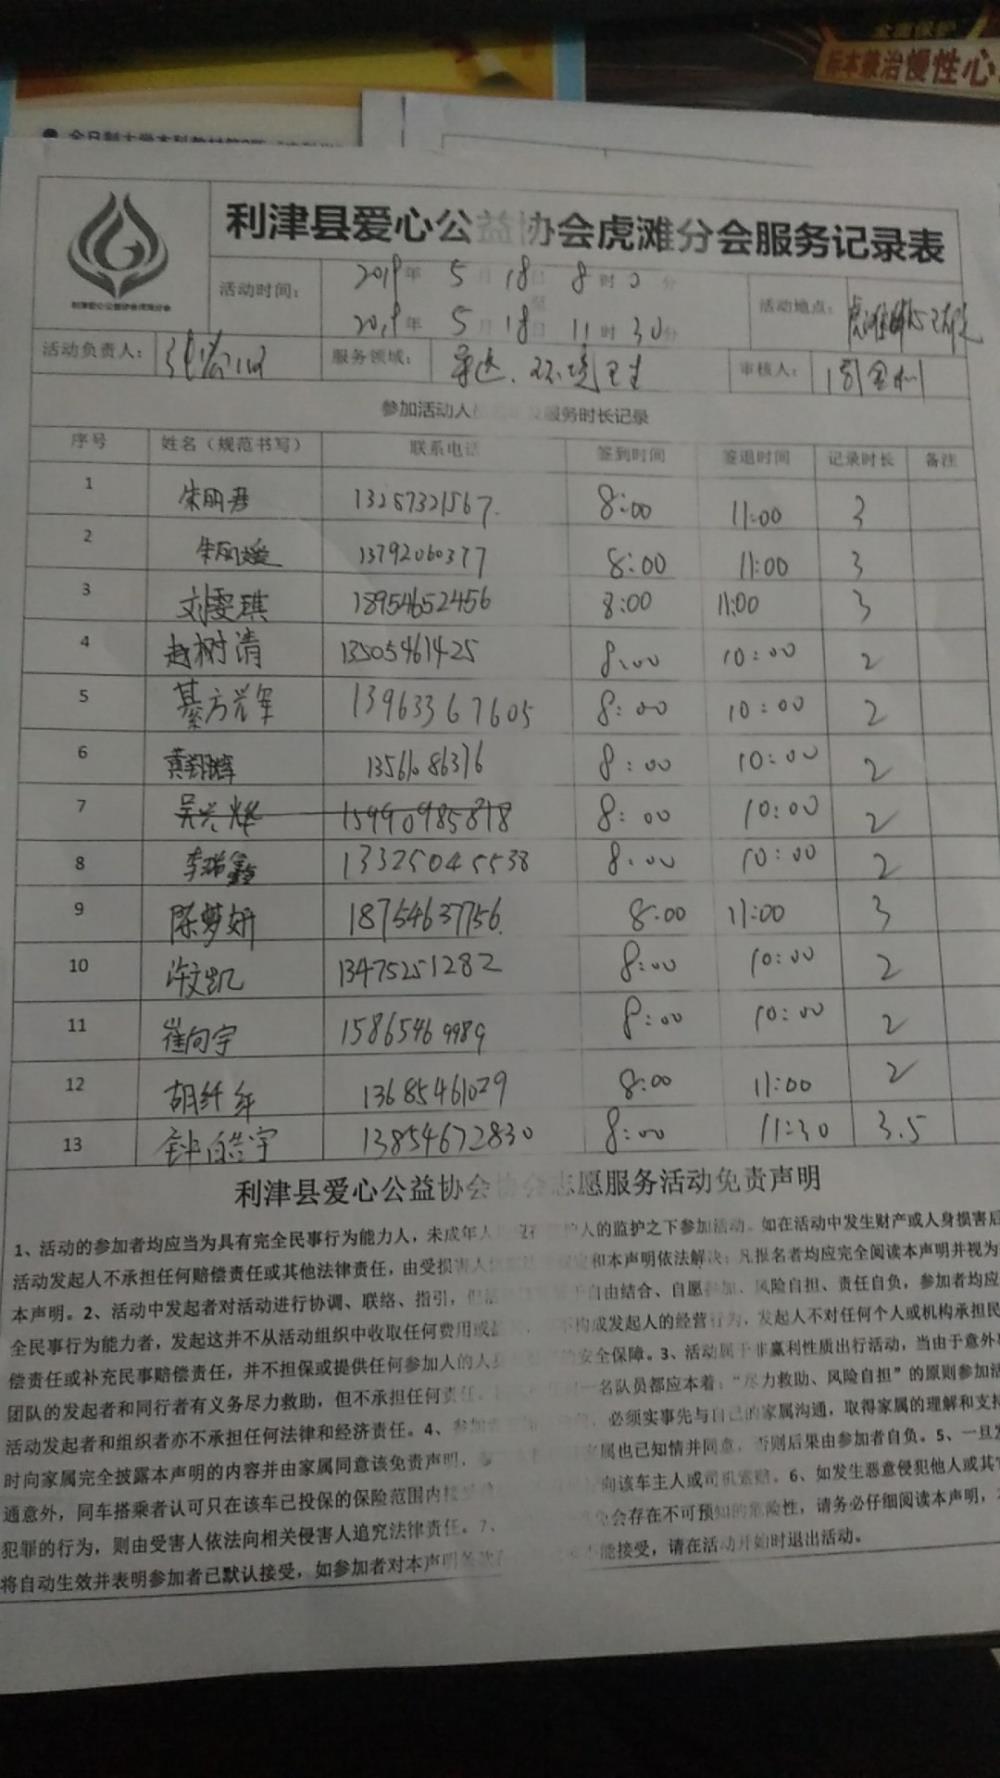 全面保护
标本兼治慢性心
利津县爱心公益协会虎滩分会服务记录表
利津爱心公益协会虎滩分会
活动时间： 2019年 5月 18日 8时 0分
至
2019年 5月 18日 11时 30分
活动地点：
活动负责人： 服务领域： 环境卫生 审核人：
参加活动人 服务时长记录
序号 姓名（规范书写） 联系电话 签到时间 签退时间 记录时长 备注
1 朱丽君 13287321567 8:00 11:00 3
2 13792060377 8:00 11:00 3
3 刘雯琪 18954652456 8:00 11:00 3
4 赵树清 13505461425 8:00 10:00 2
5 綦方誉军 13963367605 8:00 10:00 2
6 黄翔辉 1356186376 8:00 10:00 2
7 8:00 10:00 2
8 李瑞鑫 13325045538 8:00 10:00 2
9 陈梦妍 18754637756 8:00 11:00 3
10 许文凯 13475251282 8:00 10:00 2
11 崔向宇 15865469989 8:00 10:00 2
12 胡纤纤 13685461029 8:00 11:00 2
13 钟皓宇 13854672830 8:00 11:30 3.5
利津县爱心公益协会 协会志愿服务活动免责声明
1、活动的参加者均应当为具有完全民事行为能力人，未成年人 人的监护之下参加活动。如在活动中发生财产或人身损害后
活动发起人不承担任何赔偿责任或其他法律责任，由受损害人 定和本声明依法解决；凡报名者均应完全阅读本声明并视为
本声明。2、活动中发起者对活动进行协调、联络、指引，但 自由结合、自愿参加、风险自担、责任自负，参加者均应
全民事行为能力者，发起这并不从活动组织中收取任何费用或 不构成发起人的经营行为，发起人不对任何个人或机构承担民
偿责任或补充民事赔偿责任，并不担保或提供任何参加人的人 的安全保障。3、活动属于非赢利性质出行活动，当由于意外
团队的发起者和同行者有义务尽力救助，但不承担任何责任， 一名队员都应本着：“尽力救助、风险自担”的原则参加活
活动发起者和组织者亦不承担任何法律和经济责任。4、参加 必须实事先与自己的家属沟通，取得家属的理解和支持
时向家属完全披露本声明的内容并由家属同意该免责声明， 家属也已知情并同意，否则后果由参加者自负。5、一旦发
通意外，同车搭乘者认可只在该车已投保的保险范围内 向该车主人或司机索赔。6、如发生恶意侵犯他人或其
犯罪的行为，则由受害人依法向相关侵害人追究法律责任。7、 会存在不可预知的危险性，请务必仔细阅读本声明，
将自动生效并表明参加者已默认接受，如参加者对本声明条款 能接受，请在活动开始时退出活动。